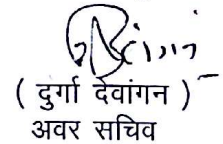 ( दुर्गा देवांगन )
अवर सचिव